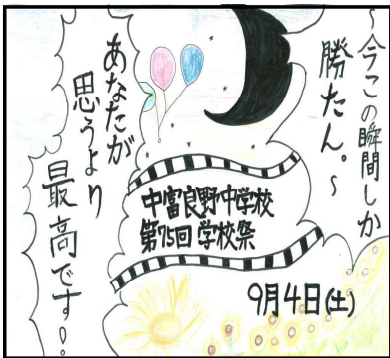 ～今この瞬間しか
勝たん。～
あなたが
思うより
最高です!!
中富良野中学校
第75回 学校祭
9月4日(土)